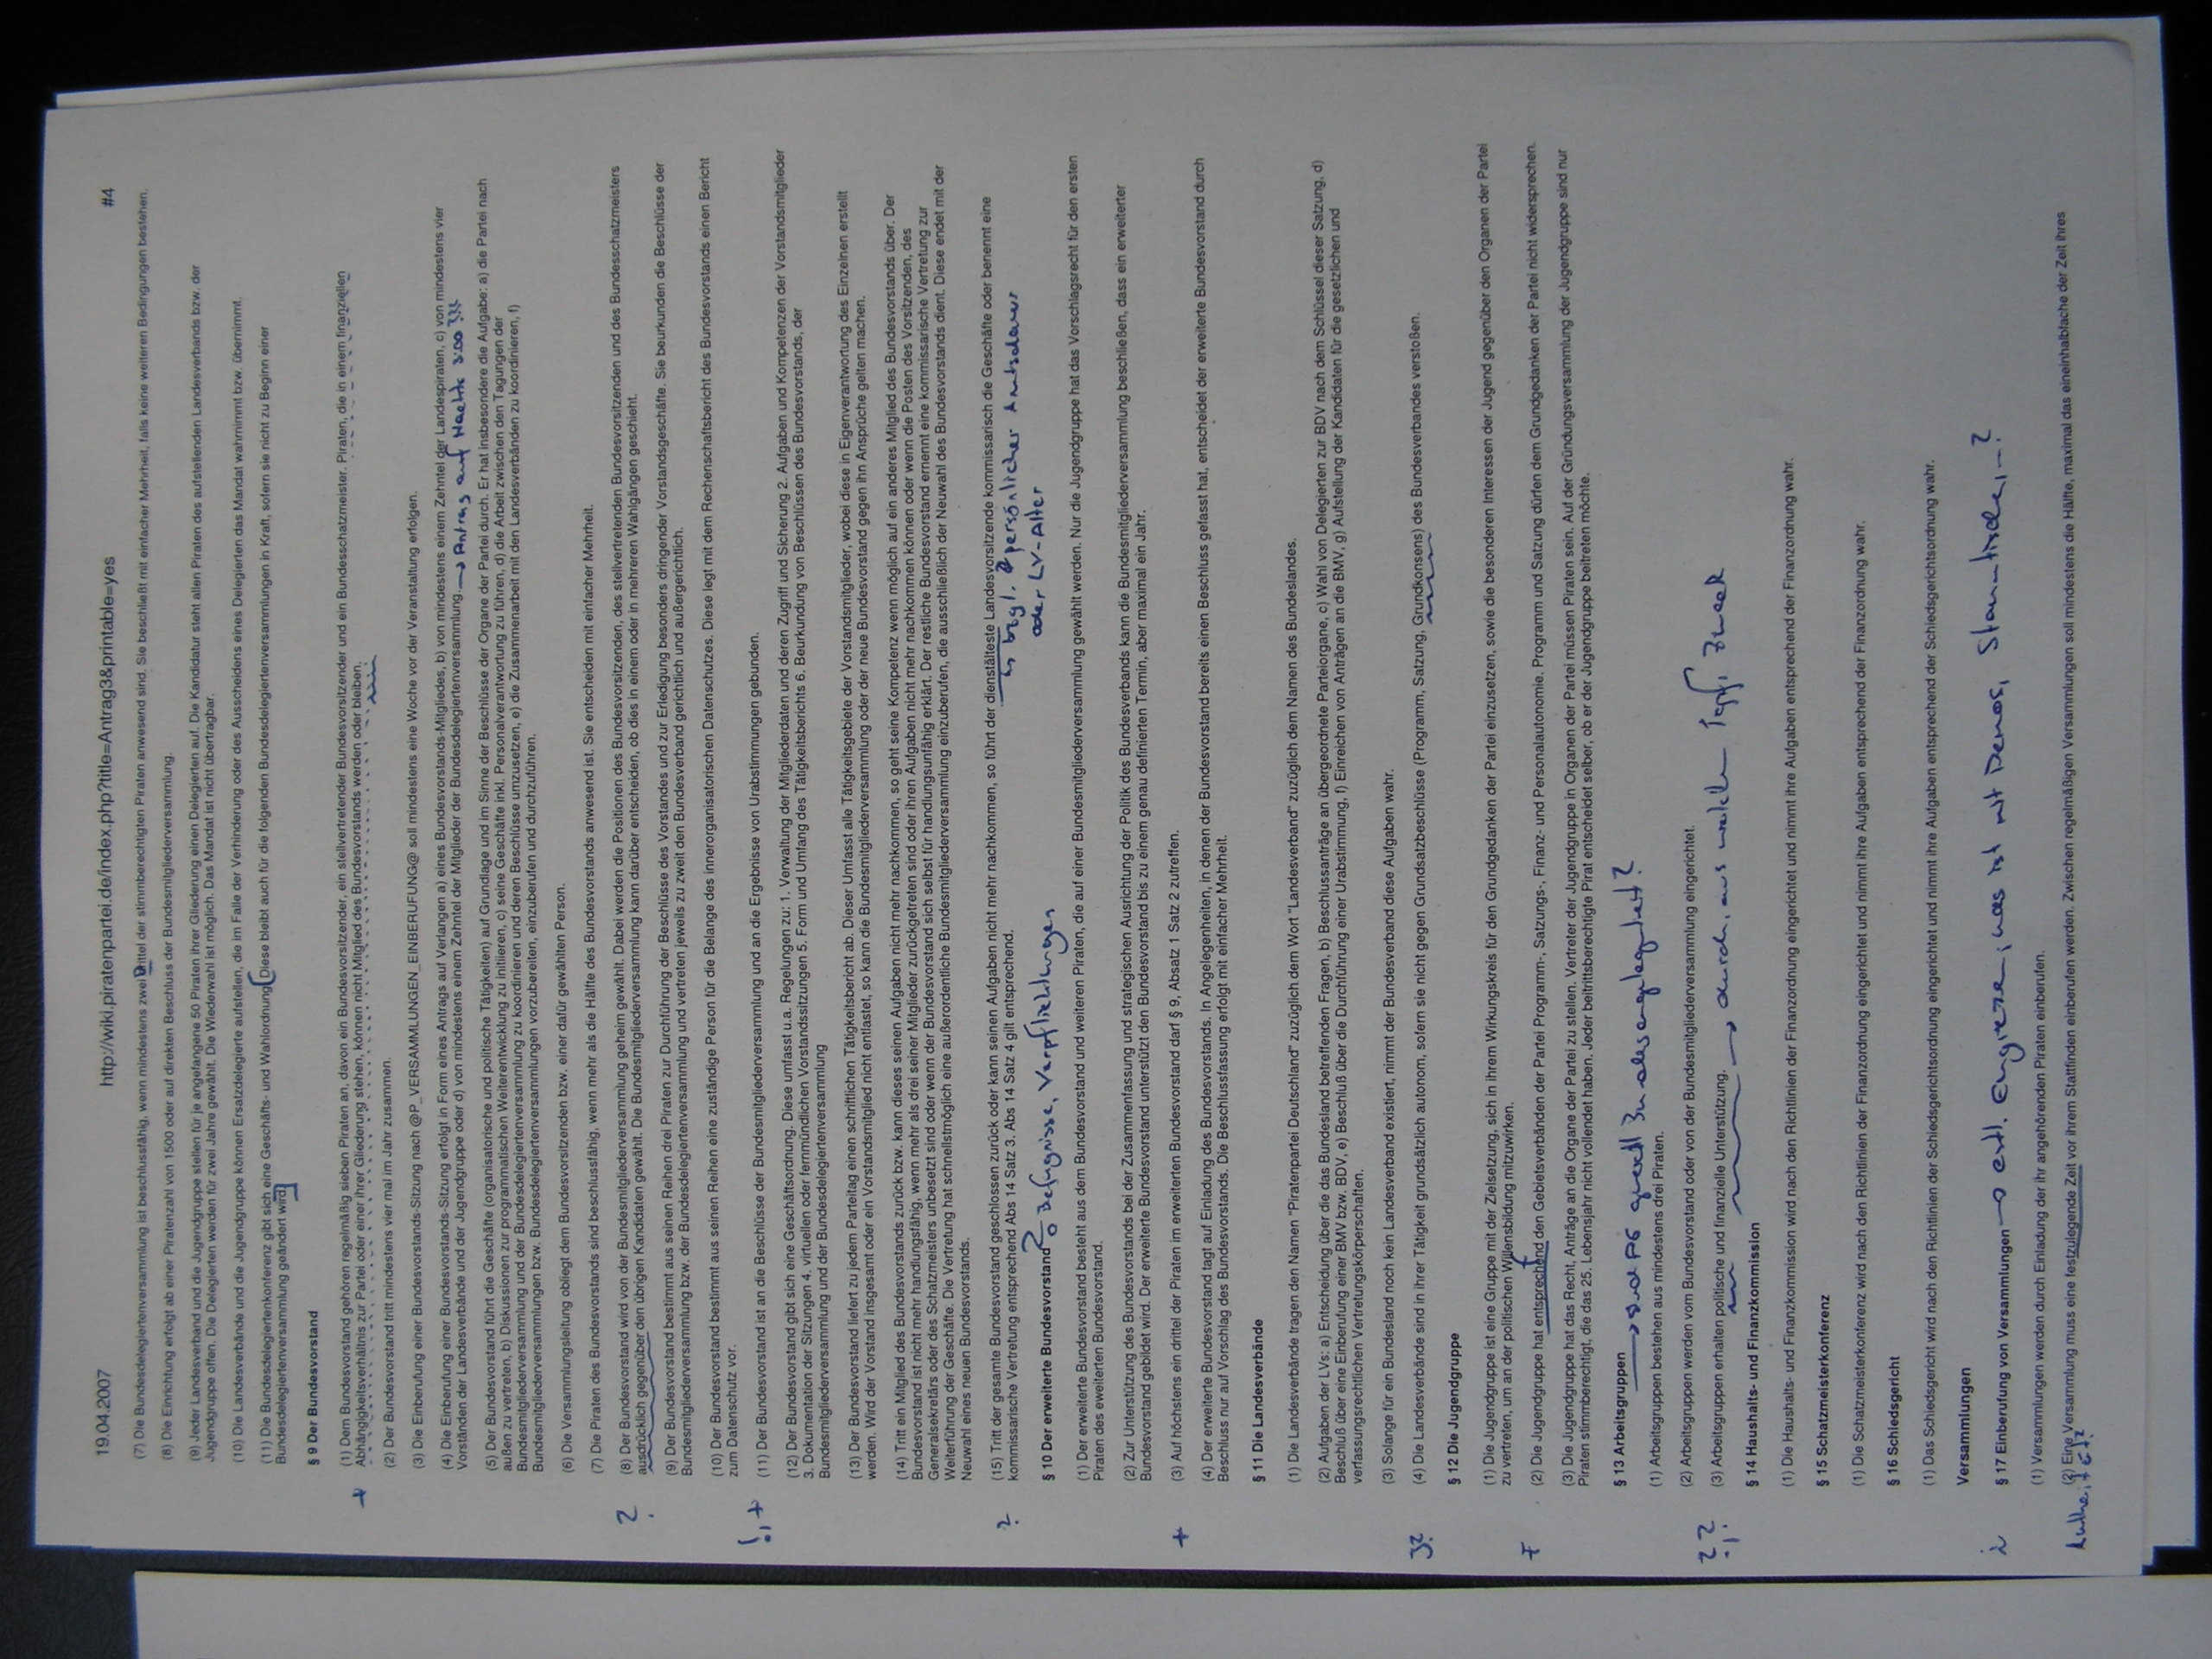 19.04.2007 http://wiki.piratenpartei.de/index.php?title=Antrag3&printable=yes #4
(7) Die Bundesdelegiertenversammlung ist beschlussfähig, wenn mindestens zwei Drittel der stimmberechtigten Piraten anwesend sind. Sie beschließt mit einfacher Mehrheit, falls keine weiteren Bedingungen bestehen.
(8) Die Einrichtung erfolgt ab einer Piratenzahl von 1500 oder auf direkten Beschluss der Bundesmitgliederversammlung.
(9) Jeder Landesverband und die Jugendgruppe stellen für je angefangene 50 Piraten ihrer Gliederung einen Delegierten auf. Die Kandidatur steht allen Piraten des aufstellenden Landesverbands bzw. der
Jugendgruppe offen. Die Delegierten werden für zwei Jahre gewählt. Die Wiederwahl ist möglich. Das Mandat ist nicht übertragbar.
(10) Die Landesverbände und die Jugendgruppe können Ersatzdelegierte aufstellen, die im Falle der Verhinderung oder des Ausscheidens eines Delegierten das Mandat wahrnimmt bzw. übernimmt.
(11) Die Bundesdelegiertenkonferenz gibt sich eine Geschäfts- und Wahlordnung. Diese bleibt auch für die folgenden Bundesdelegiertenversammlungen in Kraft, sofern sie nicht zu Beginn einer
Bundesdelegiertenversammlung geändert wird.
§ 9 Der Bundesvorstand
(1) Dem Bundesvorstand gehören regelmäßig sieben Piraten an, davon ein Bundesvorsitzender, ein stellvertretender Bundesvorsitzender und ein Bundesschatzmeister. Piraten, die in einem finanziellen
+ Abhängigkeitsverhältnis zur Partei oder einer ihrer Gliederung stehen, können nicht Mitglied des Bundesvorstands werden oder bleiben.
(2) Der Bundesvorstand tritt mindestens vier mal im Jahr zusammen.
(3) Die Einberufung einer Bundesvorstands-Sitzung nach @P_VERSAMMLUNGEN_EINBERUFUNG@ soll mindestens eine Woche vor der Veranstaltung erfolgen.
(4) Die Einberufung einer Bundesvorstands-Sitzung erfolgt in Form eines Antrags auf Verlangen a) eines Bundesvorstands-Mitgliedes, b) von mindestens einem Zehntel der Landespiraten, c) von mindestens vier
Vorständen der Landesverbände und der Jugendgruppe oder d) von mindestens einem Zehntel der Mitglieder der Bundesdelegiertenversammlung. → Antrag auf
(5) Der Bundesvorstand führt die Geschäfte (organisatorische und politische Tätigkeiten) auf Grundlage und im Sinne der Beschlüsse der Organe der Partei durch. Er hat insbesondere die Aufgabe: a) die Partei nach
außen zu vertreten, b) Diskussionen zur programmatischen Weiterentwicklung zu initiieren, c) seine Geschäfte inkl. Personalverantwortung zu führen, d) die Arbeit zwischen den Tagungen der
Bundesmitgliederversammlung und der Bundesdelegiertenversammlung zu koordinieren und deren Beschlüsse umzusetzen, e) die Zusammenarbeit mit den Landesverbänden zu koordinieren, f)
Bundesmitgliederversammlungen bzw. Bundesdelegiertenversammlungen vorzubereiten, einzuberufen und durchzuführen.
(6) Die Versammlungsleitung obliegt dem Bundesvorsitzenden bzw. einer dafür gewählten Person.
(7) Die Piraten des Bundesvorstands sind beschlussfähig, wenn mehr als die Hälfte des Bundesvorstands anwesend ist. Sie entscheiden mit einfacher Mehrheit.
? (8) Der Bundesvorstand wird von der Bundesmitgliederversammlung geheim gewählt. Dabei werden die Positionen des Bundesvorsitzenden, des stellvertretenden Bundesvorsitzenden und des Bundesschatzmeisters
ausdrücklich gegenüber den übrigen Kandidaten gewählt. Die Bundesmitgliederversammlung kann darüber entscheiden, ob dies in einem oder in mehreren Wahlgängen geschieht.
(9) Der Bundesvorstand bestimmt aus seinen Reihen drei Piraten zur Durchführung der Beschlüsse des Vorstandes und zur Erledigung besonders dringender Vorstandsgeschäfte. Sie beurkunden die Beschlüsse der
Bundesmitgliederversammlung bzw. der Bundesdelegiertenversammlung und vertreten jeweils zu zweit den Bundesverband gerichtlich und außergerichtlich.
(10) Der Bundesvorstand bestimmt aus seinen Reihen eine zuständige Person für die Belange des innerorganisatorischen Datenschutzes. Diese legt mit dem Rechenschaftsbericht des Bundesvorstands einen Bericht
zum Datenschutz vor.
!,+ (11) Der Bundesvorstand ist an die Beschlüsse der Bundesmitgliederversammlung und an die Ergebnisse von Urabstimmungen gebunden.
(12) Der Bundesvorstand gibt sich eine Geschäftsordnung. Diese umfasst u.a. Regelungen zu: 1. Verwaltung der Mitgliederdaten und deren Zugriff und Sicherung 2. Aufgaben und Kompetenzen der Vorstandsmitglieder
3. Dokumentation der Sitzungen 4. virtuellen oder fernmündlichen Vorstandssitzungen 5. Form und Umfang des Tätigkeitsberichts 6. Beurkundung von Beschlüssen des Bundesvorstands, der
Bundesmitgliederversammlung und der Bundesdelegiertenversammlung
(13) Der Bundesvorstand liefert zu jedem Parteitag einen schriftlichen Tätigkeitsbericht ab. Dieser Umfasst alle Tätigkeitsgebiete der Vorstandsmitglieder, wobei diese in Eigenverantwortung des Einzelnen erstellt
werden. Wird der Vorstand insgesamt oder ein Vorstandsmitglied nicht entlastet, so kann die Bundesmitgliederversammlung oder der neue Bundesvorstand gegen ihn Ansprüche gelten machen.
(14) Tritt ein Mitglied des Bundesvorstands zurück bzw. kann dieses seinen Aufgaben nicht mehr nachkommen, so geht seine Kompetenz wenn möglich auf ein anderes Mitglied des Bundesvorstands über. Der
Bundesvorstand ist nicht mehr handlungsfähig, wenn mehr als drei seiner Mitglieder zurückgetreten sind oder ihren Aufgaben nicht mehr nachkommen können oder wenn die Posten des Vorsitzenden, des
Generalsekretärs oder des Schatzmeisters unbesetzt sind oder wenn der Bundesvorstand sich selbst für handlungsunfähig erklärt. Der restliche Bundesvorstand ernennt eine kommissarische Vertretung zur
Weiterführung der Geschäfte. Die Vertretung hat schnellstmöglich eine außerordentliche Bundesmitgliederversammlung einzuberufen, die ausschließlich der Neuwahl des Bundesvorstands dient. Diese endet mit der
Neuwahl eines neuen Bundesvorstands.
? (15) Tritt der gesamte Bundesvorstand geschlossen zurück oder kann seinen Aufgaben nicht mehr nachkommen, so führt der dienstälteste Landesvorsitzende kommissarisch die Geschäfte oder benennt eine
kommissarische Vertretung entsprechend Abs 14 Satz 3. Abs 14 Satz 4 gilt entsprechend.
↳ bzgl. persönlicher Amtsdauer
oder LV-Alter
§ 10 Der erweiterte Bundesvorstand ? Befugnisse, Verpflichtungen
(1) Der erweiterte Bundesvorstand besteht aus dem Bundesvorstand und weiteren Piraten, die auf einer Bundesmitgliederversammlung gewählt werden. Nur die Jugendgruppe hat das Vorschlagsrecht für den ersten
Piraten des erweiterten Bundesvorstand.
(2) Zur Unterstützung des Bundesvorstands bei der Zusammenfassung und strategischen Ausrichtung der Politik des Bundesverbands kann die Bundesmitgliederversammlung beschließen, dass ein erweiterter
Bundesvorstand gebildet wird. Der erweiterte Bundesvorstand unterstützt den Bundesvorstand bis zu einem genau definierten Termin, aber maximal ein Jahr.
+ (3) Auf höchstens ein drittel der Piraten im erweiterten Bundesvorstand darf § 9, Absatz 1 Satz 2 zutreffen.
(4) Der erweiterte Bundesvorstand tagt auf Einladung des Bundesvorstands. In Angelegenheiten, in denen der Bundesvorstand bereits einen Beschluss gefasst hat, entscheidet der erweiterte Bundesvorstand durch
Beschluss nur auf Vorschlag des Bundesvorstands. Die Beschlussfassung erfolgt mit einfacher Mehrheit.
§ 11 Die Landesverbände
(1) Die Landesverbände tragen den Namen "Piratenpartei Deutschland" zuzüglich dem Wort "Landesverband" zuzüglich dem Namen des Bundeslandes.
(2) Aufgaben der LVs: a) Entscheidung über die das Bundesland betreffenden Fragen, b) Beschlussanträge an übergeordnete Parteiorgane, c) Wahl von Delegierten zur BDV nach dem Schlüssel dieser Satzung, d)
Beschluß über eine Einberufung einer BMV bzw. BDV, e) Beschluß über die Durchführung einer Urabstimmung, f) Einreichen von Anträgen an die BMV, g) Aufstellung der Kandidaten für die gesetzlichen und
verfassungsrechtlichen Vertretungskörperschaften.
(3) Solange für ein Bundesland noch kein Landesverband existiert, nimmt der Bundesverband diese Aufgaben wahr.
(4) Die Landesverbände sind in ihrer Tätigkeit grundsätzlich autonom, sofern sie nicht gegen Grundsatzbeschlüsse (Programm, Satzung, Grundkonsens) des Bundesverbandes verstoßen.
§ 12 Die Jugendgruppe
(1) Die Jugendgruppe ist eine Gruppe mit der Zielsetzung, sich in ihrem Wirkungskreis für den Grundgedanken der Partei einzusetzen, sowie die besonderen Interessen der Jugend gegenüber den Organen der Partei
zu vertreten, um an der politischen Willensbildung mitzuwirken.
+ (2) Die Jugendgruppe hat entsprechend den Gebietsverbänden der Partei Programm-, Satzungs-, Finanz- und Personalautonomie. Programm und Satzung dürfen dem Grundgedanken der Partei nicht widersprechen.
(3) Die Jugendgruppe hat das Recht, Anträge an die Organe der Partei zu stellen. Vertreter der Jugendgruppe in Organen der Partei müssen Piraten sein. Auf der Gründungsversammlung der Jugendgruppe sind nur
Piraten stimmberechtigt, die das 25. Lebensjahr nicht vollendet haben. Jeder beitrittsberechtigte Pirat entscheidet selber, ob er der Jugendgruppe beitreten möchte.
§ 13 Arbeitsgruppen → sind AG generell Bundesangelegenheit?
(1) Arbeitsgruppen bestehen aus mindestens drei Piraten.
(2) Arbeitsgruppen werden vom Bundesvorstand oder von der Bundesmitgliederversammlung eingerichtet.
(3) Arbeitsgruppen erhalten politische und finanzielle Unterstützung. → durch, aus welchem Topf; Zweck
§ 14 Haushalts- und Finanzkommission
(1) Die Haushalts- und Finanzkommission wird nach den Richtlinien der Finanzordnung eingerichtet und nimmt ihre Aufgaben entsprechend der Finanzordnung wahr.
§ 15 Schatzmeisterkonferenz
(1) Die Schatzmeisterkonferenz wird nach den Richtlinien der Finanzordnung eingerichtet und nimmt ihre Aufgaben entsprechend der Finanzordnung wahr.
§ 16 Schiedsgericht
(1) Das Schiedsgericht wird nach den Richtlinien der Schiedsgerichtsordnung eingerichtet und nimmt ihre Aufgaben entsprechend der Schiedsgerichtsordnung wahr.
Versammlungen
§ 17 Einberufung von Versammlungen → evtl. Eingrenzen; was ist mit Demos, Stammtischen, -?
(1) Versammlungen werden durch Einladung der ihr angehörenden Piraten einberufen.
(2) Eine Versammlung muss eine festzulegende Zeit vor ihrem Stattfinden einberufen werden. Zwischen regelmäßigen Versammlungen soll mindestens die Hälfte, maximal das eineinhalbfache der Zeit ihres